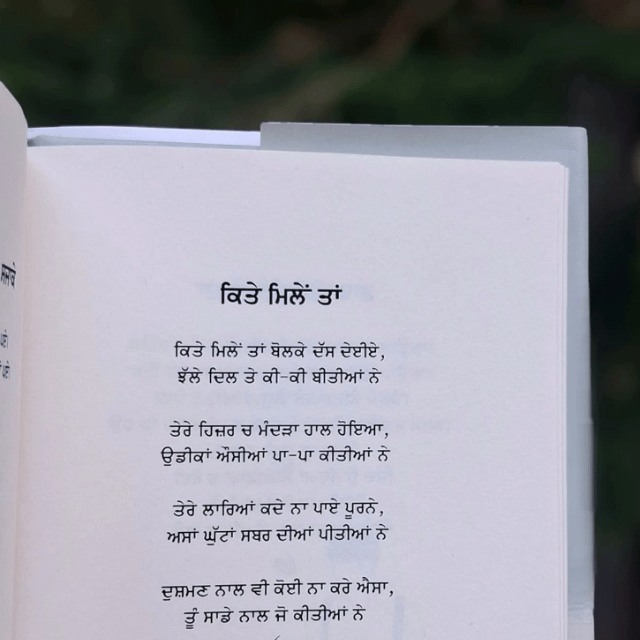 ਕਿਤੇ ਮਿਲੇਂ ਤਾਂ
ਕਿਤੇ ਮਿਲੇਂ ਤਾਂ ਬੋਲਕੇ ਦੱਸ ਦੇਈਏ,
ਝੱਲੇ ਦਿਲ ਤੇ ਕੀ-ਕੀ ਬੀਤੀਆਂ ਨੇ
ਤੇਰੇ ਹਿਜ਼ਰ ਚ ਮੰਦੜਾ ਹਾਲ ਹੋਇਆ,
ਉਡੀਕਾਂ ਔਸੀਆਂ ਪਾ-ਪਾ ਕੀਤੀਆਂ ਨੇ
ਤੇਰੇ ਲਾਰਿਆਂ ਕਦੇ ਨਾ ਪਾਏ ਪੂਰਨੇ,
ਅਸਾਂ ਘੁੱਟਾਂ ਸਬਰ ਦੀਆਂ ਪੀਤੀਆਂ ਨੇ
ਦੁਸ਼ਮਣ ਨਾਲ ਵੀ ਕੋਈ ਨਾ ਕਰੇ ਐਸਾ,
ਤੂੰ ਸਾਡੇ ਨਾਲ ਜੋ ਕੀਤੀਆਂ ਨੇ